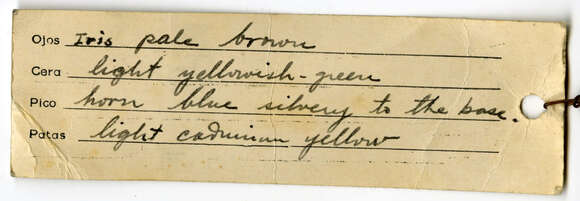 Ojos Iris pale brown
Cera light yellowish-green
Pico horn blue silvery to the base.
Patas light cadmium yellow